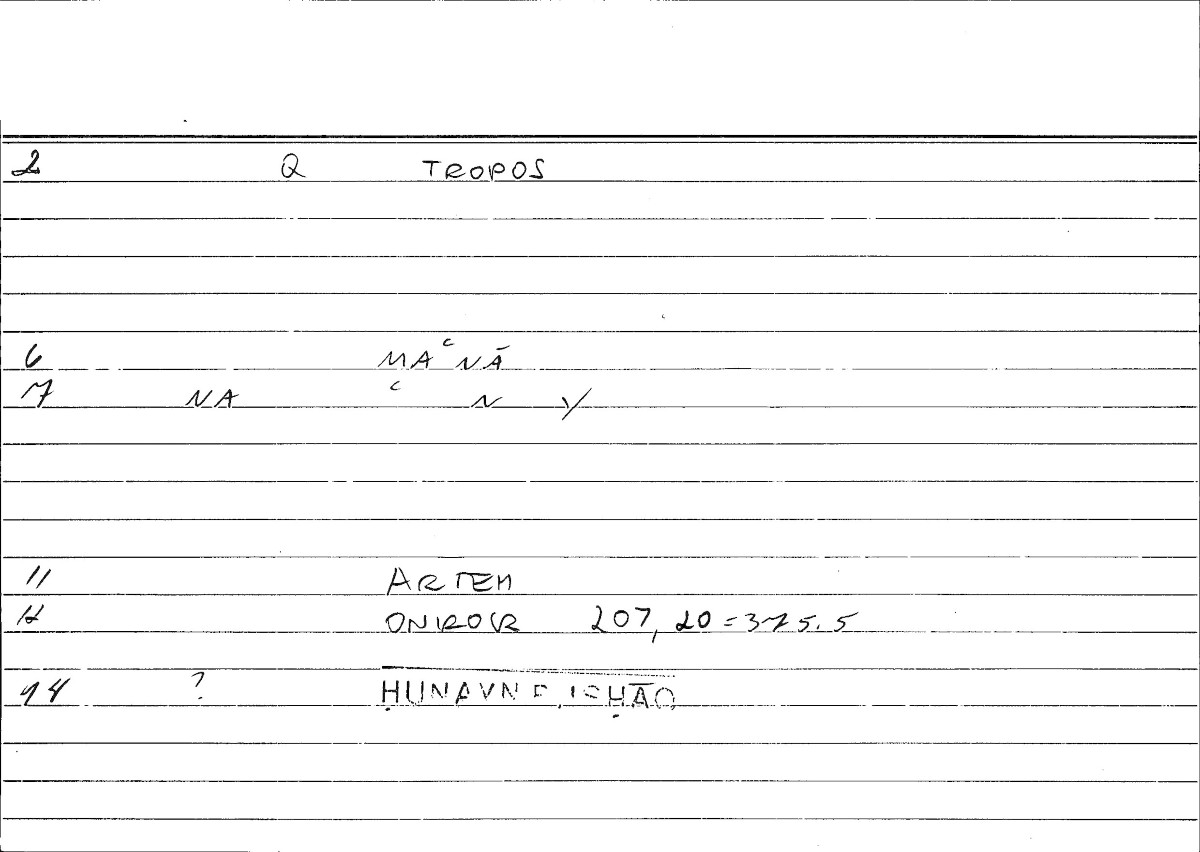 2 Q TROPOS
6 MAʿNĀ
7 NA ʿ N Y
11 ARTEM
12 ONIROCR 207, 20 = 375.5
14 ? ḤUNAYN B. ISḤĀQ